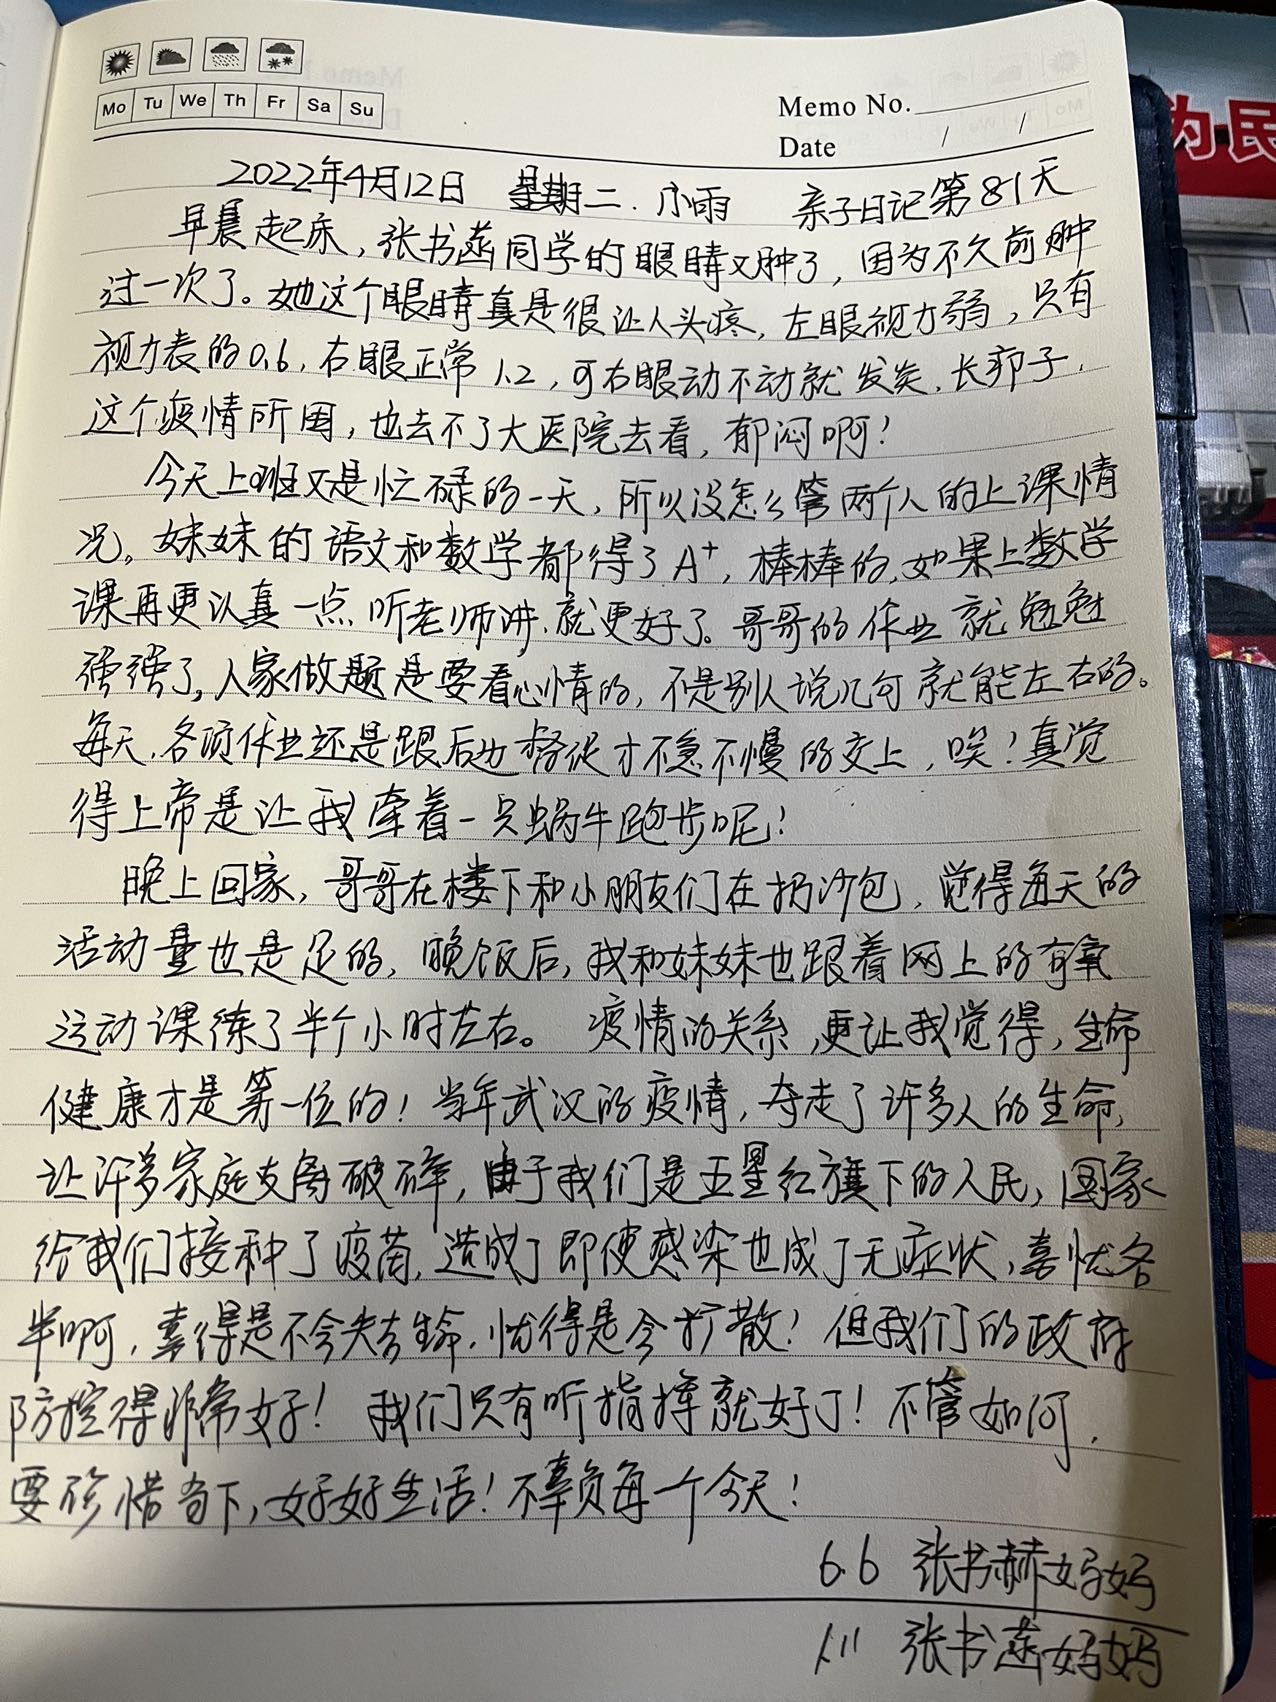 Mo Tu We Th Fr Sa Su
Memo No.
Date / /
为民
2022年4月12日 星期二. 小雨 亲子日记第81天
早晨起床,张书菡同学的眼睛又肿了,因为不久前肿
过一次了。她这个眼睛真是很让人头疼,左眼视力弱,只有
视力表的0.6,右眼正常1.2,可右眼动不动就发炎、长疖子,
这个疫情所困,也去不了大医院去看,郁闷啊!
今天上班又是忙碌的一天,所以没怎么管两个人的上课情
况。妹妹的语文和数学都得了A+,棒棒的,如果上数学
课再更认真一点听老师讲,就更好了。哥哥的作业就勉勉
强强了,人家做题是要看心情的,不是别人说几句就能左右的。
每天,各项作业还是跟后边督促才不急不慢的交上,唉!真觉
得上帝是让我牵着一只蜗牛跑步呢!
晚上回家,哥哥在楼下和小朋友们在扔沙包,觉得每天的
活动量也是足的,晚饭后,我和妹妹也跟着网上的有氧
运动课练了半个小时左右。 疫情的关系,更让我觉得,生命
健康才是第一位的!当年武汉的疫情,夺走了许多人的生命,
让许多家庭支离破碎,由于我们是五星红旗下的人民,国家
给我们接种了疫苗,造成了即使感染也成了无症状,喜忧各
半啊,喜得是不会失去生命,忧得是会扩散!但我们的政府
防控得非常好! 我们只有听指挥就好了!不管如何,
要珍惜当下,好好生活!不辜负每一个今天!
6.6 张书赫妈妈
张书菡妈妈